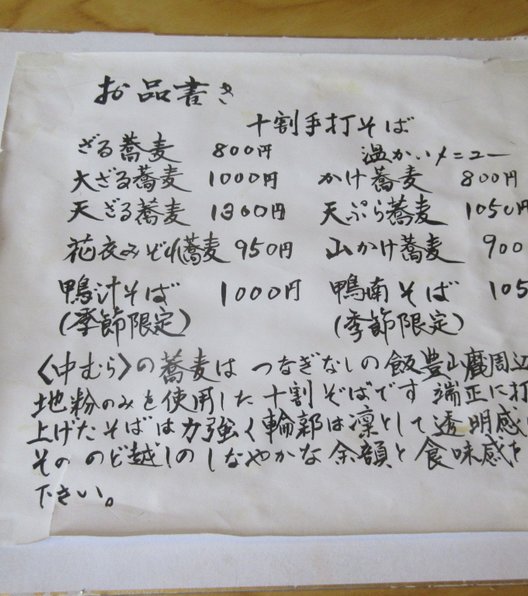 お品書き
十割手打そば
ざる蕎麦 800円 温かいメニュー
大ざる蕎麦 1000円 かけ蕎麦 800円
天ざる蕎麦 1300円 天ぷら蕎麦 1050円
花衣みぞれ蕎麦 950円 山かけ蕎麦 900
鴨汁そば 1000円 鴨南そば 105
(季節限定) (季節限定)
〈中むら〉の蕎麦は つなぎなしの飯豊山麓周辺
地粉のみを使用した十割そばです 端正に打
上げたそばは力強く輪郭は凛として透明感
そののど越しのしなやかな余韻と食味感を
下さい。